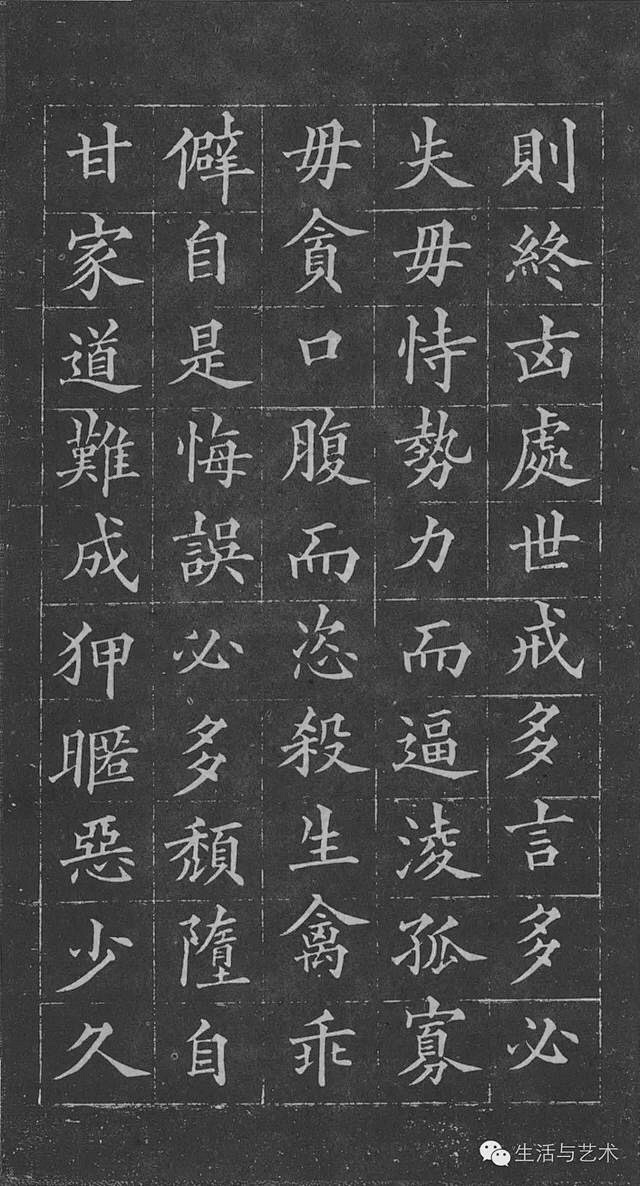 則終凶處世戒多言多必
失毋恃勢力而逼淩孤寡
毋貪口腹而恣殺生禽乖
僻自是悔誤必多頹隳自
甘家道難成狎暱惡少久
生活与艺术